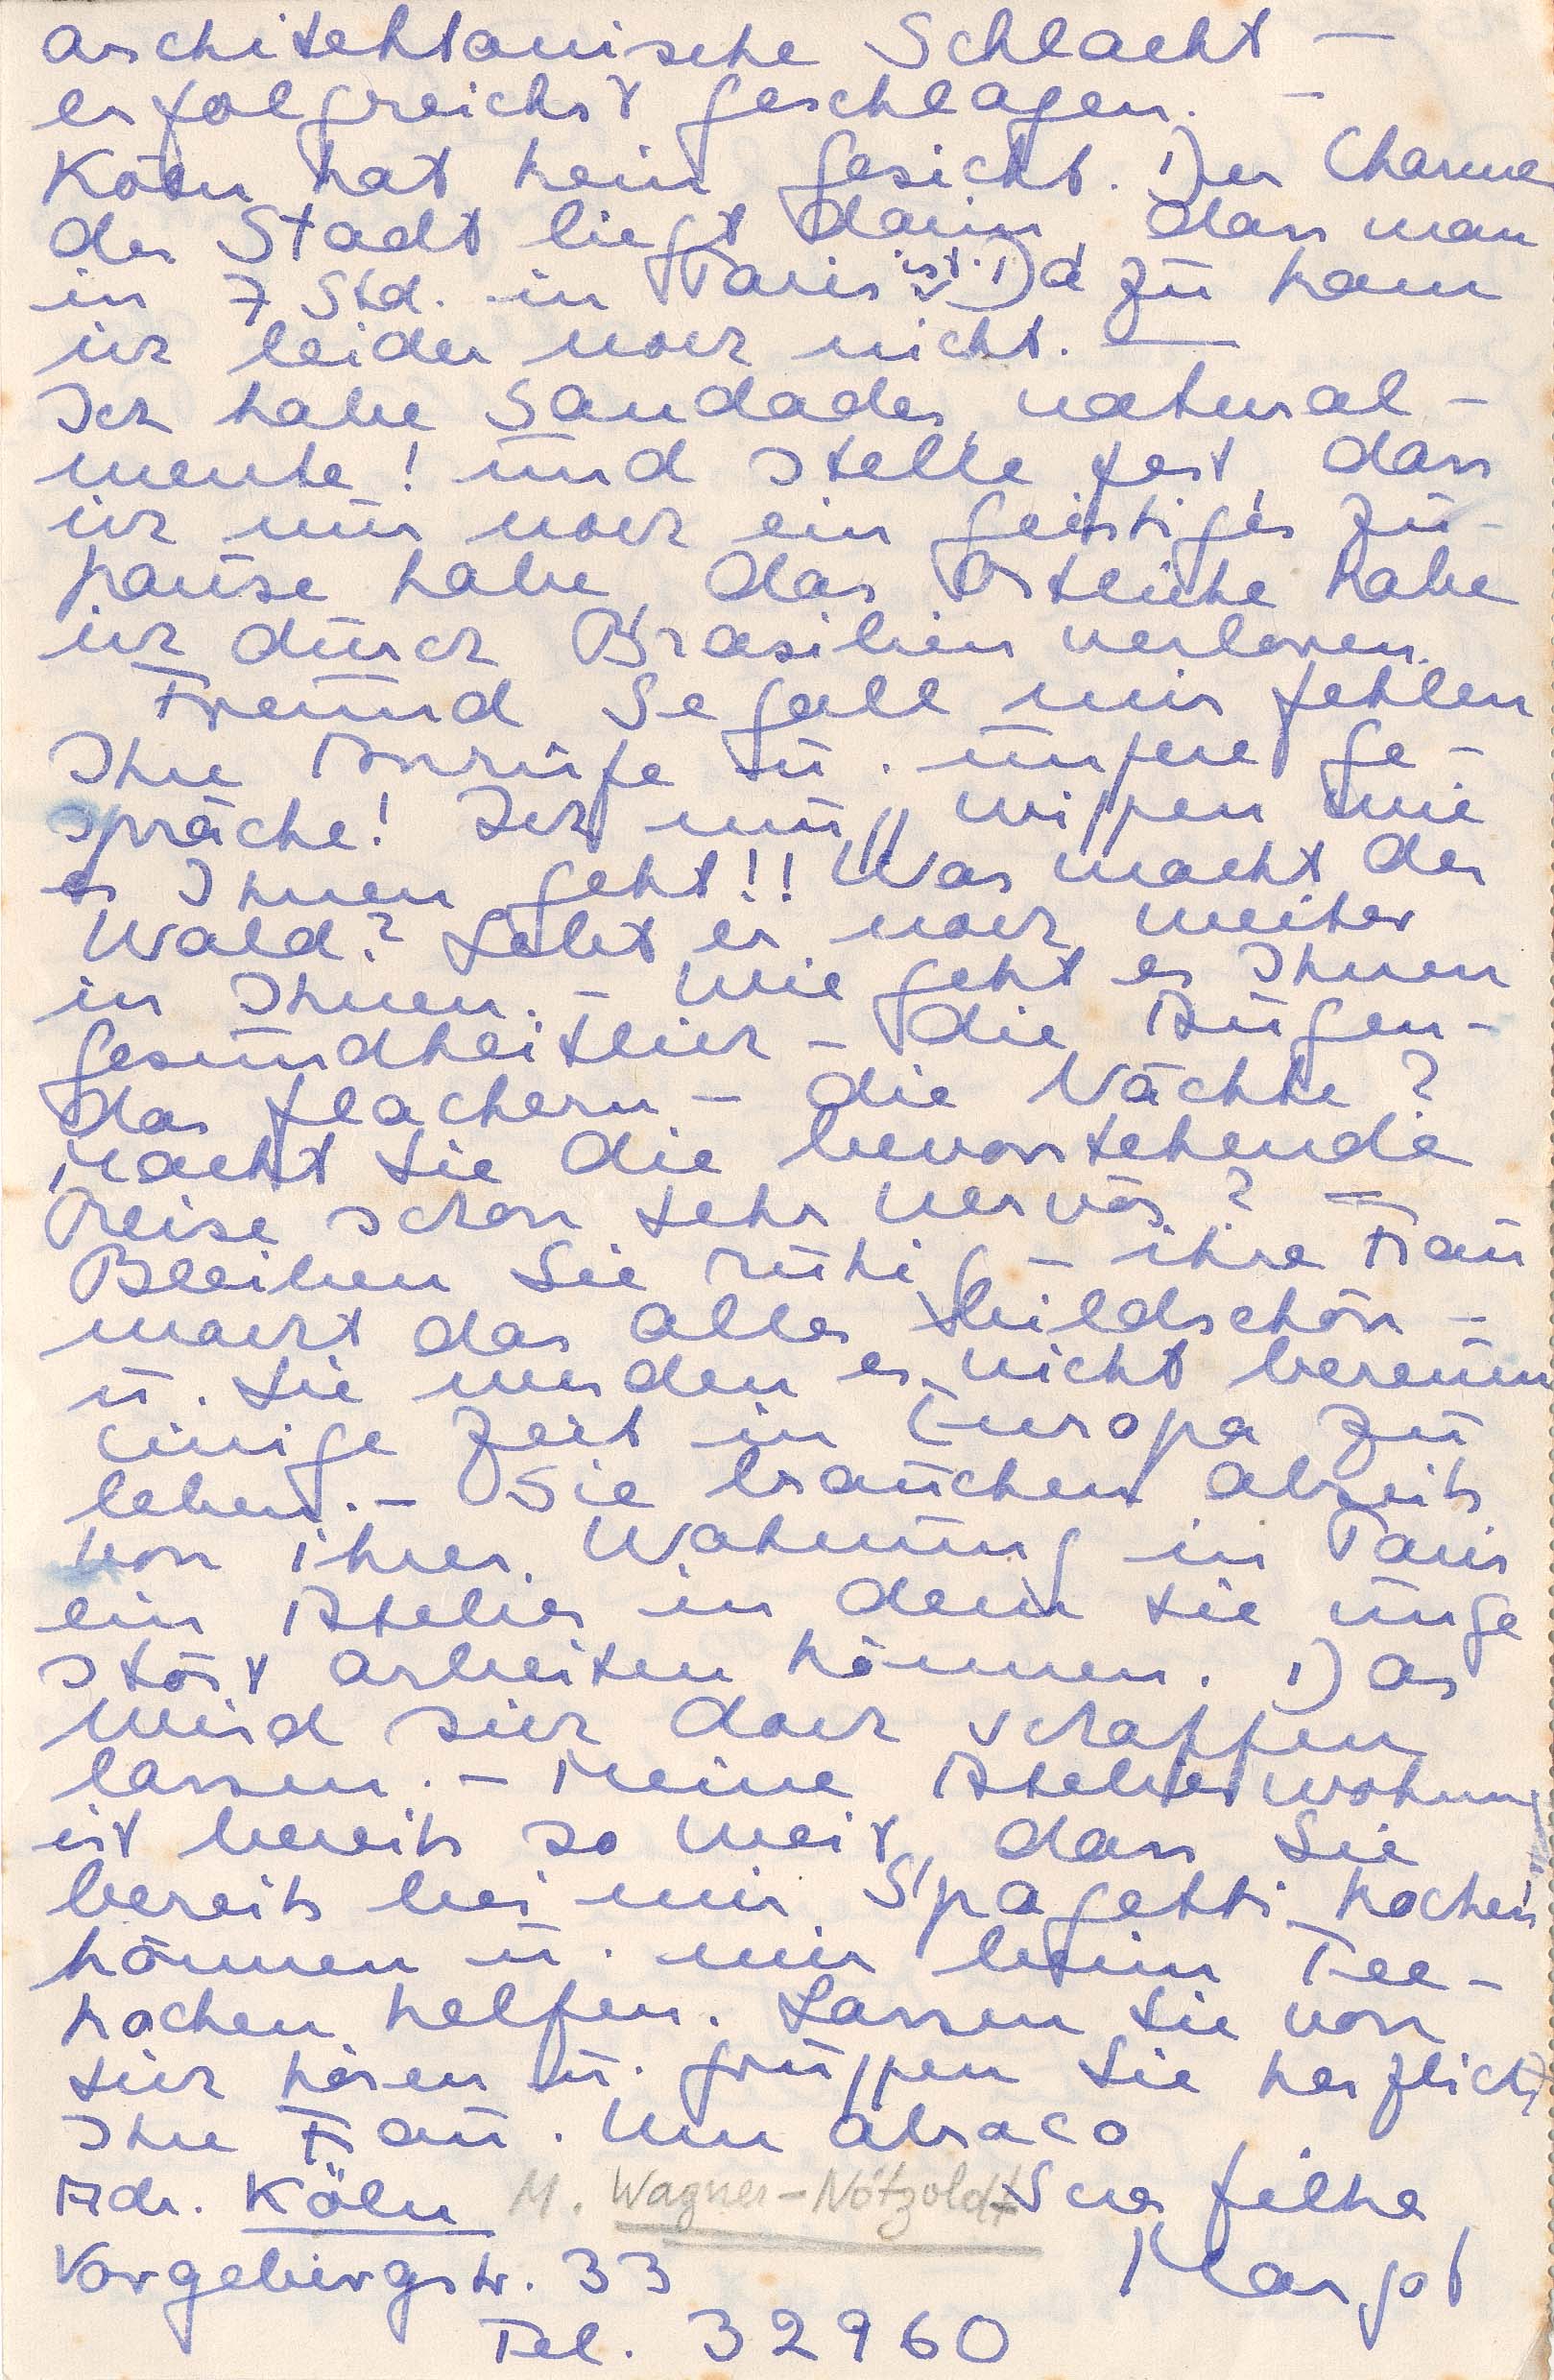 architektonische Schlacht —
erfolgreichst geschlagen. —
Köln hat kein Gesicht. Der Charme
der Stadt liegt darin, dass man
in 7 Std. in Paris ist. Dazu kam
ich leider noch nicht. —
Ich habe Saudades, natural-
mente! und stelle fest, dass
ich nur noch ein geistiges Zu-
hause habe, das örtliche habe
ich durch Brasilien verloren.
Freund Segall mir fehlen
Ihre Anrufe u. unsere Ge-
spräche! Ich muss wissen wie
es Ihnen geht!! Was macht der
Wald? Lebt er noch weiter
in Ihnen. – Wie geht es Ihnen
gesundheitlich – die Augen –
das flackern – die Nächte?
Macht Sie die bevorstehende
Reise schon sehr nervös? —
Bleiben Sie ruhig – ihre Frau
macht das alles bildschön –
u. Sie werden es nicht bereuen
einige Zeit in Europa zu
leben. – Sie brauchen abseits
von ihrer Wohnung in Paris
ein Atelier in dem Sie unge
stört arbeiten können. Das
wird sich doch schaffen
lassen. – Meine Atelierwohnung
ist bereits so weit, dass Sie
bereits bei mir Spagetti kochen
können u. mir beim Tee-
kochen helfen. Lassen Sie von
sich hören u. grüssen Sie herzlichst
Ihre Frau. Um abraco
Adr. Köln M. Wagner-Nötzoldt Sua filha
Vorgebirgstr. 33 Margot
Tel. 32960